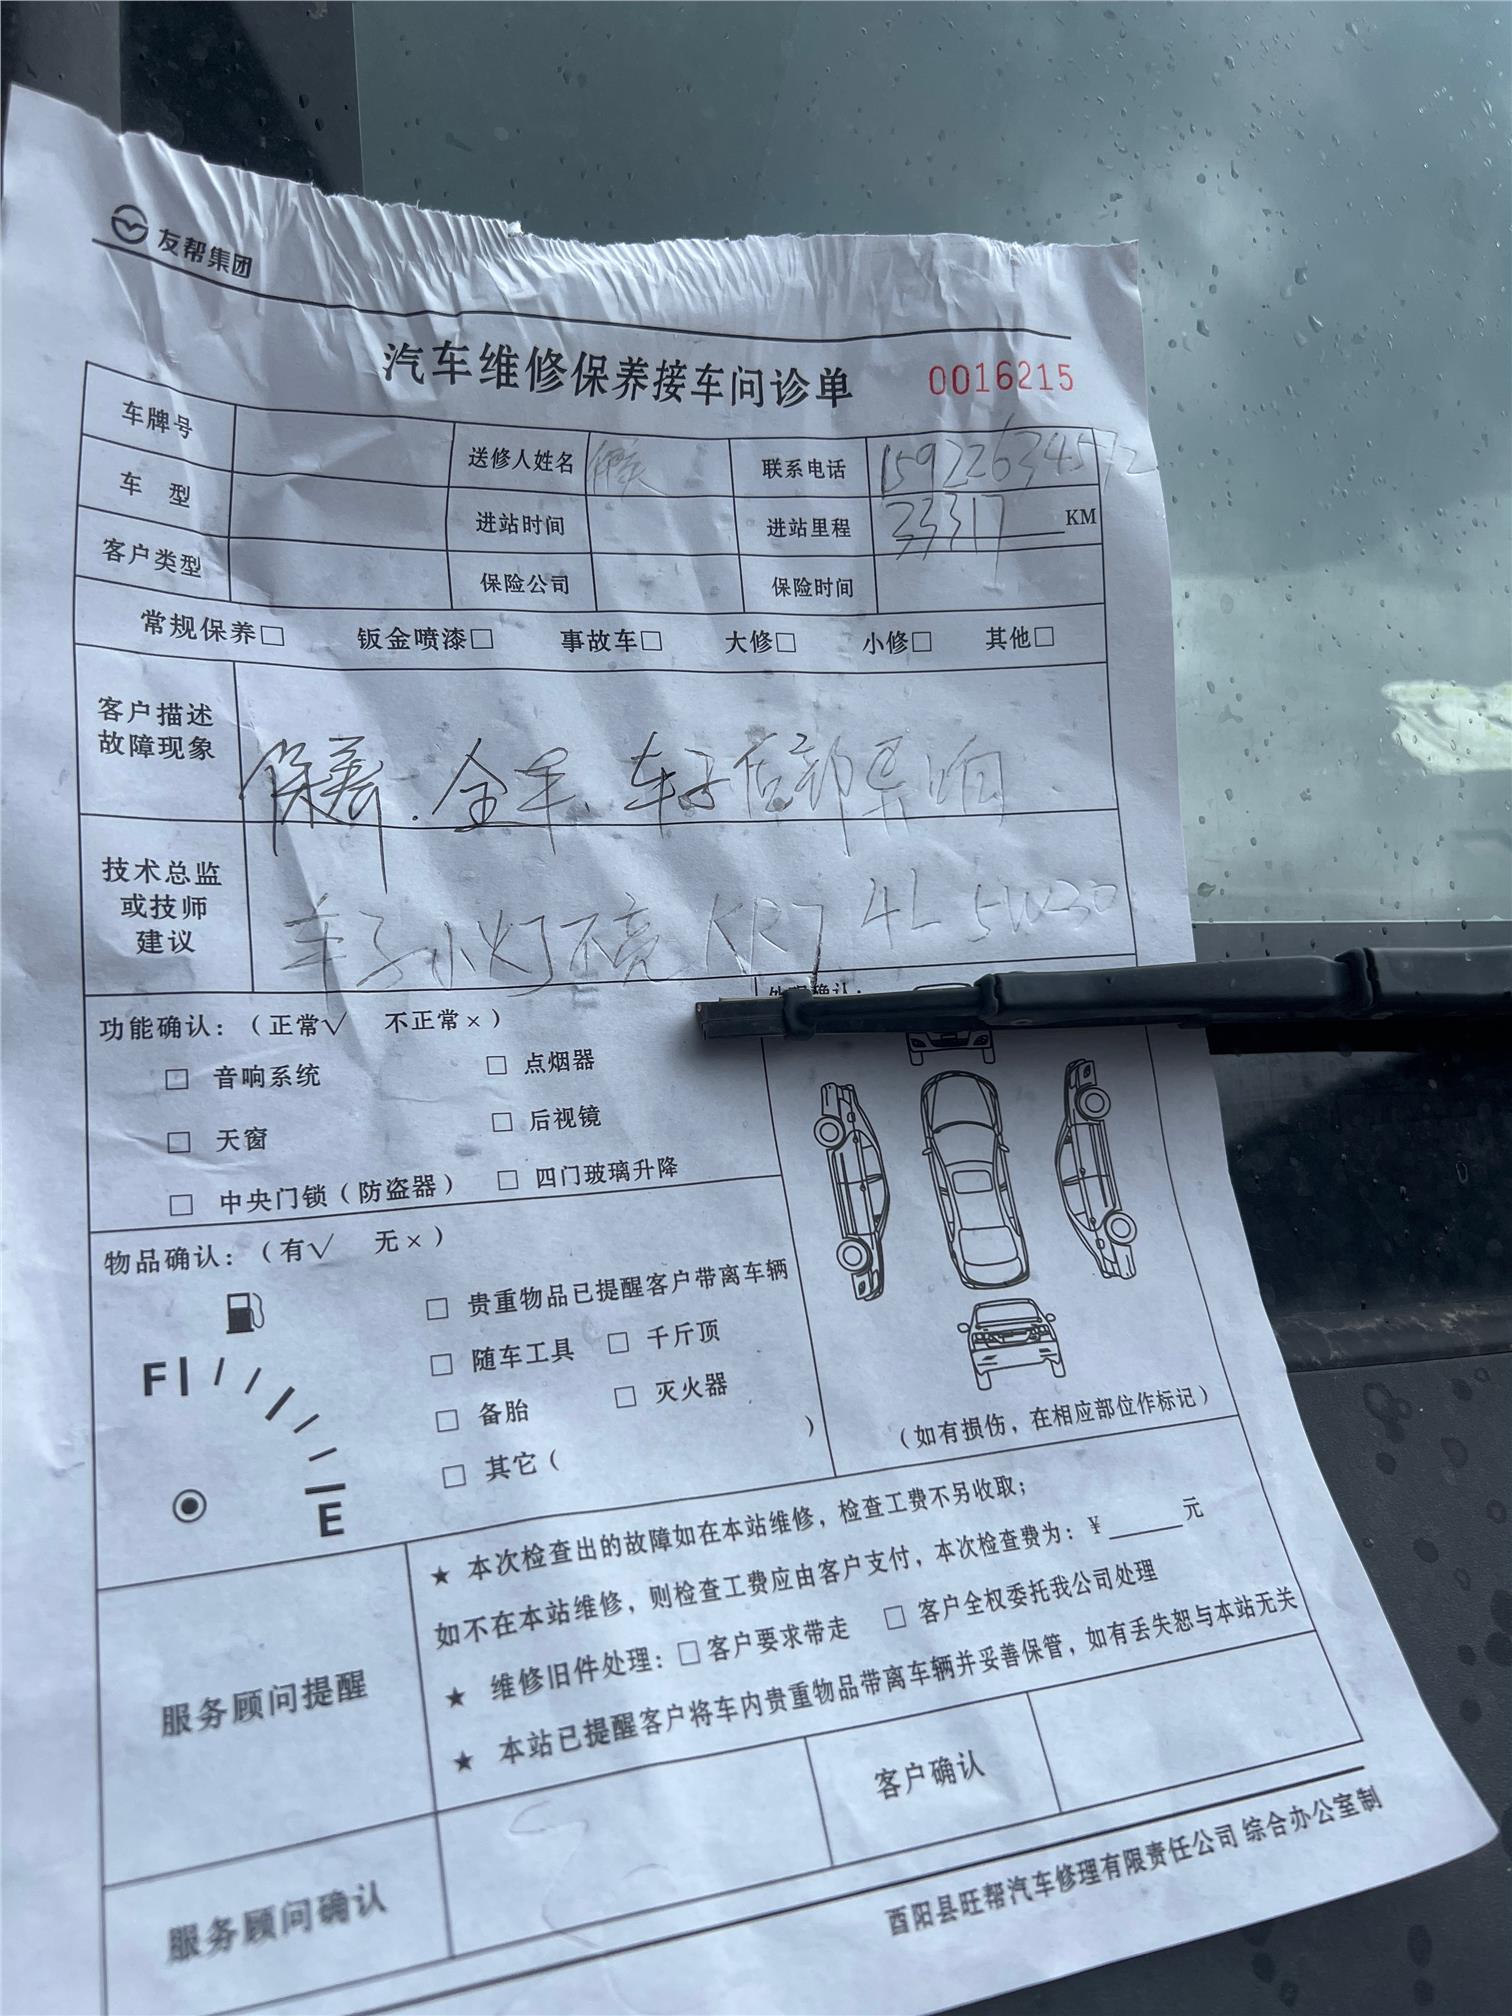 友帮集团
汽车维修保养接车问诊单 0016215
车牌号 送修人姓名 联系电话 15922634572
车 型 进站时间 进站里程 33317 KM
客户类型 保险公司 保险时间
常规保养□ 钣金喷漆□ 事故车□ 大修□ 小修□ 其他□
客户描述
故障现象
保养.全车.车子后部异响
技术总监
或技师
建议
车子小灯不亮 KR7 4L 5W30
功能确认:(正常√ 不正常×)
□ 音响系统 □ 点烟器
□ 天窗 □ 后视镜
□ 中央门锁(防盗器) □ 四门玻璃升降
物品确认:(有√ 无×)
□ 贵重物品已提醒客户带离车辆
□ 随车工具 □ 千斤顶
□ 备胎 □ 灭火器
□ 其它( )
F
E
(如有损伤,在相应部位作标记)
服务顾问提醒
★ 本次检查出的故障如在本站维修,检查工费不另收取;
如不在本站维修,则检查工费应由客户支付,本次检查费为:¥______元
★ 维修旧件处理:□客户要求带走 □ 客户全权委托我公司处理
★ 本站已提醒客户将车内贵重物品带离车辆并妥善保管,如有丢失恕与本站无关
服务顾问确认 客户确认
酉阳县旺帮汽车修理有限责任公司 综合办公室制